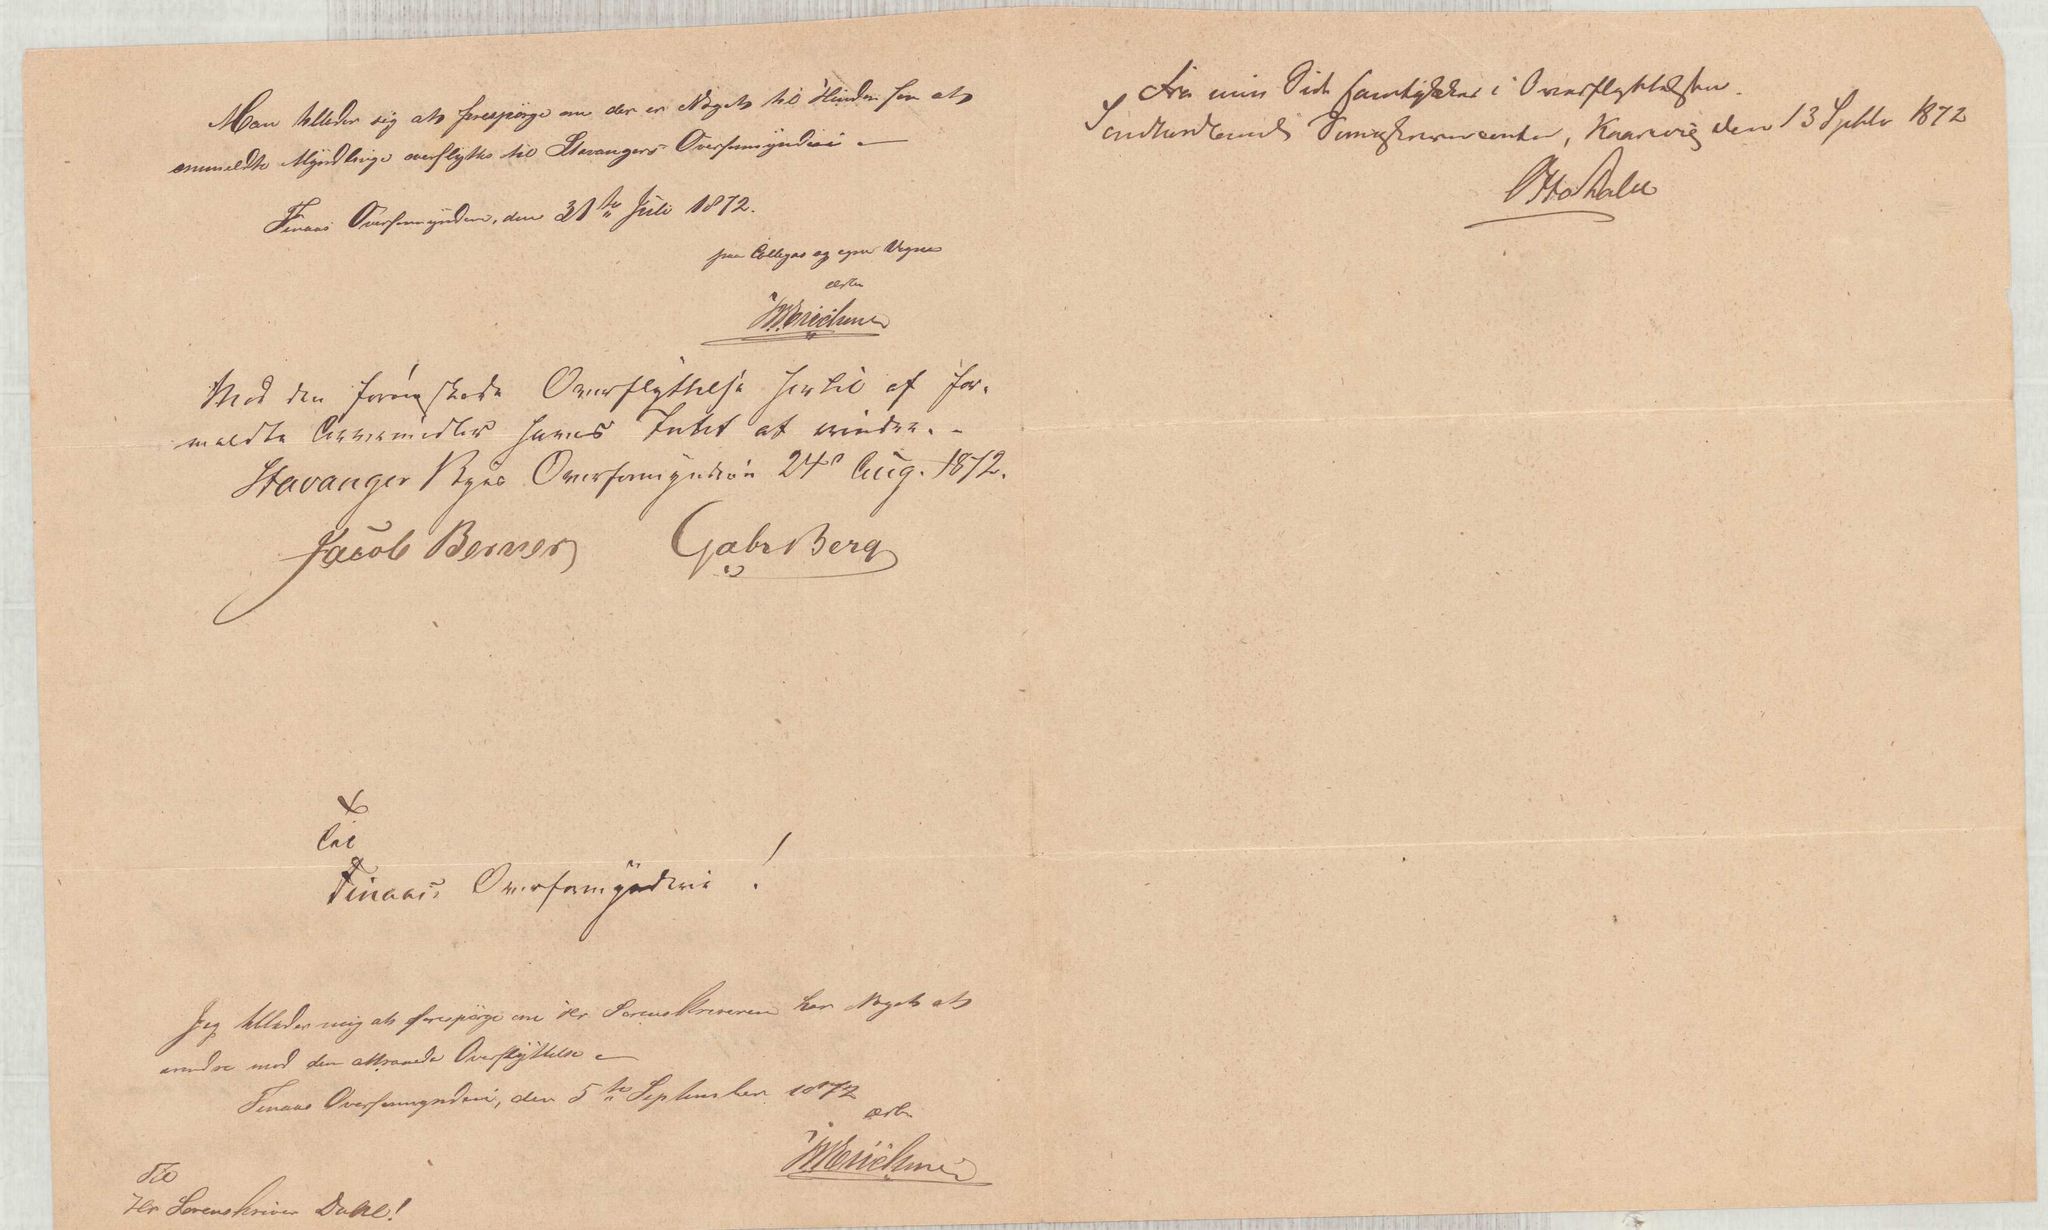 Man tillader sig at forespørge om der er Noget til Hinder for at
anmeldte Myndlinge overflyttes til Stavangers Overformynderi –
Finaas Overformynderi, den 31te Juli 1872.
paa Collegas og egne Vegne
ærbr
Med den foreønskede Overflyttelse hertil af for-
meldte Arvemidler haves Intet at erindre. –
Stavanger Byes Overformynderi 24de Aug. 1872.
Jacob Berner Gabr Berg
Til
Finaas Overformynderi !
Jeg tillader mig at forespørge om Hr Sorenskriveren har Noget at
erindre mod den attraaede Overflyttelse –
Finaas Overformynderi, den 5te September 1872
ærbr
Til
Hr Sorenskriver Dahl!
Fra min Side samtykkes i Overflyttelsen.
Søndhordlands Sorenskriverembede, den 13 Septbr 1872